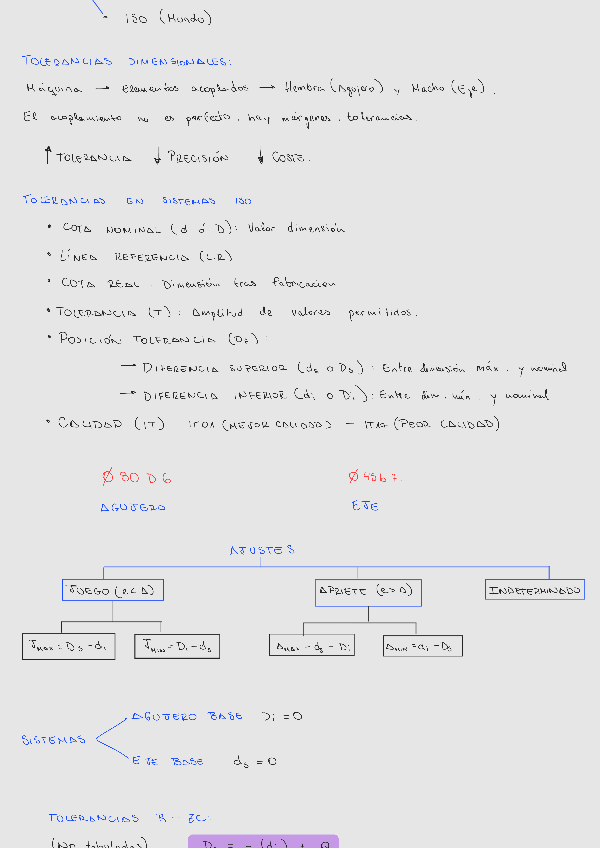 ISO (Mundo)
TOLERANCIAS DIMENSIONALES:
Máquina → Elementos acoplados → Hembra (Agujero) y Macho (Eje).
El acoplamiento no es perfecto, hay márgenes, tolerancias.
↑ TOLERANCIA ↓ PRECISIÓN ↓ COSTE.
TOLERANCIAS EN SISTEMAS ISO
• COTA NOMINAL (d ó D): Valor dimensión
• LÍNEA REFERENCIA (L.R)
• COTA REAL: Dimensión tras fabricación
• TOLERANCIA (T): Amplitud de valores permitidos.
• POSICIÓN TOLERANCIA
→ DIFERENCIA SUPERIOR (ds o Ds): Entre dimensión máx. y nominal
→ DIFERENCIA INFERIOR (di o Di): Entre dim. mín. y nominal
• CALIDAD (IT) IT01 (MEJOR CALIDAD) - (PEOR CALIDAD)
Ø 80 D6 Ø
AGUJERO EJE
AJUSTES
JUEGO (e < A) APRIETE (e > A) INDETERMINADO
JMAX = Ds - di JMIN = Di - ds AMAX = ds - Di AMIN = di - Ds
AGUJERO BASE Di = 0
SISTEMAS
EJE BASE ds = 0
TOLERANCIAS R - ZC:
(No tabuladas) = - (di) +